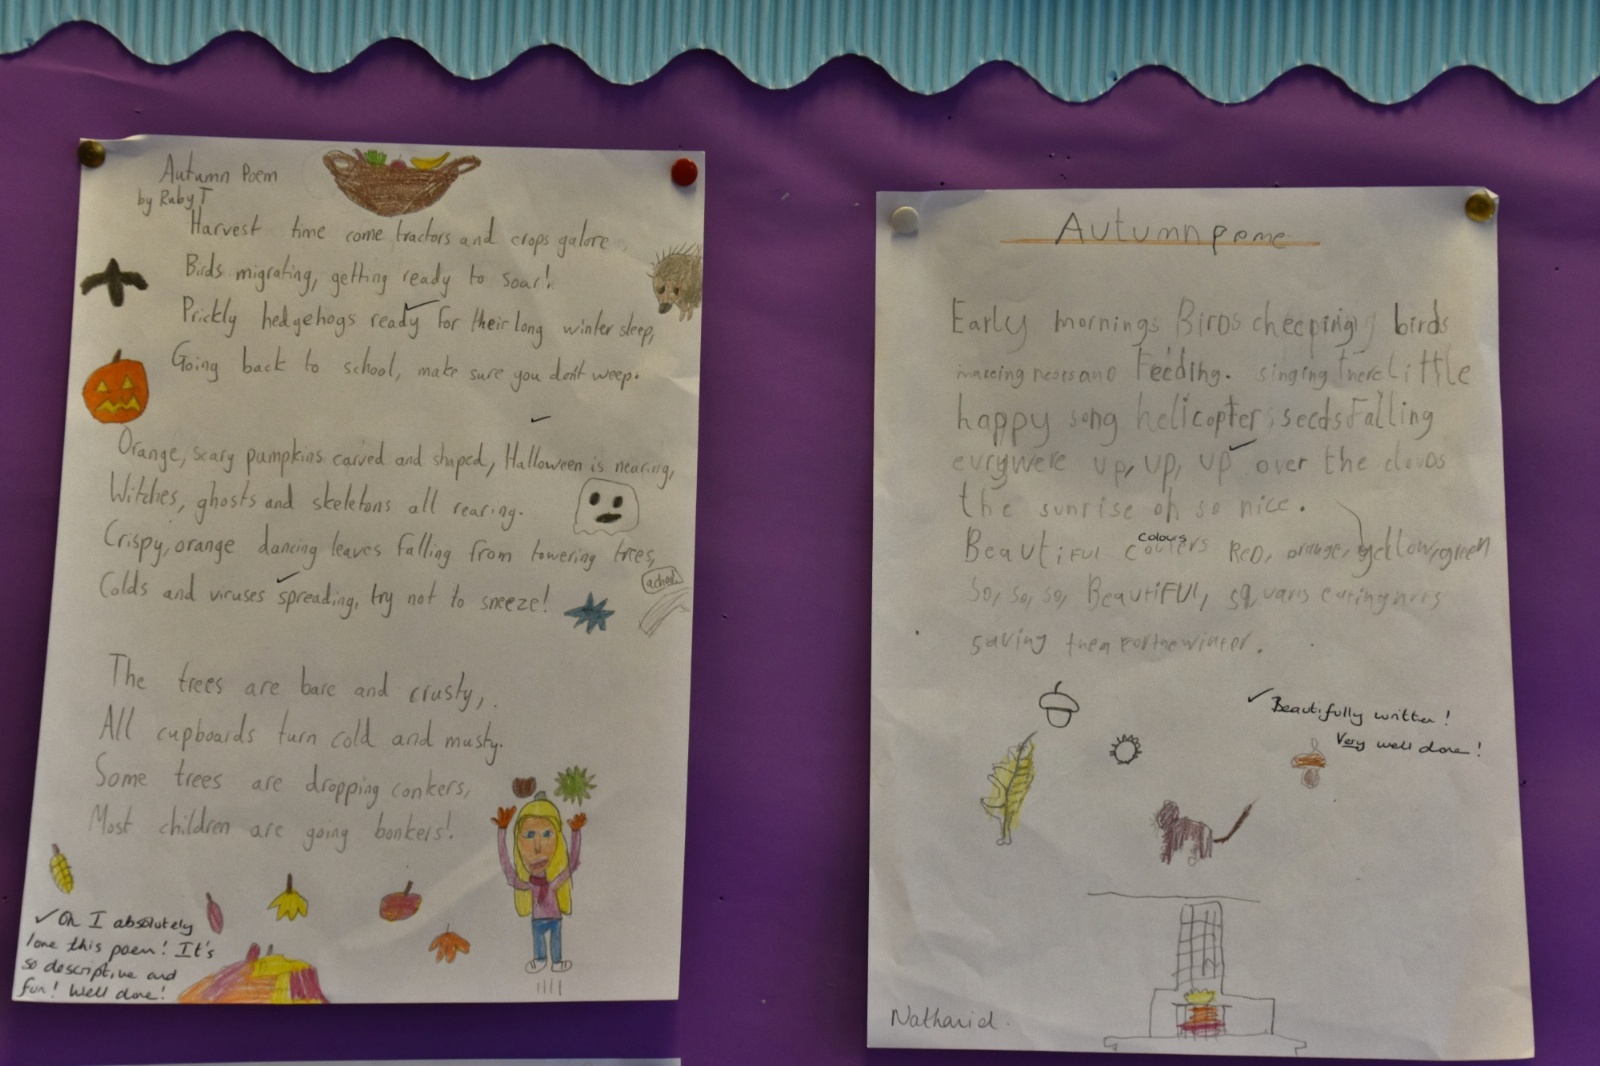 Autumn Poem
by Ruby T
Harvest time come tractors and crops galore
Birds migrating, getting ready to soar!
Prickly hedgehogs ready for their long winter sleep,
Going back to school, make sure you don't weep.
Orange, scary pumpkins carved and shaped, Halloween is nearing,
Witches, ghosts and skeletons all rearing.
Crispy, orange dancing leaves falling from towering trees,
Colds and viruses spreading, try not to sneeze!
achoo!
The trees are bare and crusty,
All cupboards turn cold and musty.
Some trees are dropping conkers,
Most children are going bonkers!
Oh I absolutely
love this poem! It's
so descriptive and
fun! Well done!
Autumn pome
Early mornings Birds cheeping birds
makeing nests and Feeding. singing there Little
happy song helicopter seeds Falling
evrywere up, up, up over the clouds
the sunrise oh so nice.
colours
Beautiful RED, orange, yellow, green
So, so, so, BeautiFUL,
saving them For the winter.
Beautifully written!
Very well done!
Nathaniel.